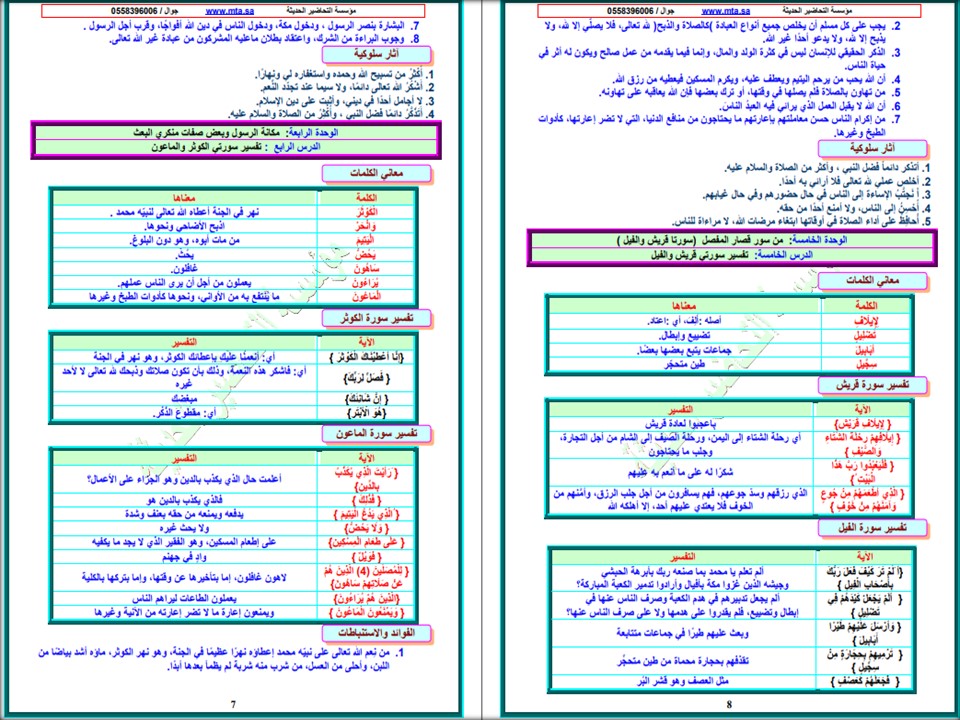 مؤسسة التحاضير الحديثة www.mta.sa جوال / 0558396006
7. البشارة بنصر الرسول ، ودخول مكة، ودخول الناس في دين الله أفواجًا، وقرب أجل الرسول .
8. وجوب البراءة من الشرك، واعتقاد بطلان ماعليه المشركون من عبادة غير الله تعالى.
آثار سلوكية
1. أُكْثِرُ من تسبيح الله وحمده واستغفاره لي ونهارًا.
2. أَشْكُرُ الله تعالى دائمًا، ولا سيما عند تجدّد النِّعم.
3. لا أجامل أحدًا في ديني، وأثبت على دين الإسلام.
4. أتذكَّرُ دائمًا فضل النبي ، وأُكْثِرُ من الصلاة والسلام عليه.
الوحدة الرابعة: مكانة الرسول وبعض صفات منكري البعث
الدرس الرابع : تفسير سورتي الكوثر والماعون
معاني الكلمات
الكلمة معناها
الكَوْثَرَ نهر في الجنة أعطاه الله تعالى لنبيّه محمد .
وَانْحَرْ اذبح الأضاحي ونحوها.
الْيَتِيمَ من مات أبوه، وهو دون البلوغ.
يَحُضُّ يحُثّ.
سَاهُونَ غافلون.
يُرَاءُونَ يعملون من أجل أن يرى الناس عملهم.
الْمَاعُونَ ما يُنْتفع به من الأواني، ونحوها كأدوات الطبخ وغيرها
تفسير سورة الكوثر
الآية التفسير
{إِنَّا أَعْطَيْنَاكَ الْكَوْثَرَ } أي: أنعمنا عليك بإعطائك الكوثر، وهو نهر في الجنة
{ فَصَلِّ لِرَبِّكَ} أي: فاشكر هذه النِّعمة، وذلك بأن تكون صلاتك وذبحك لله تعالى لا لأحد
غيره
{ إِنَّ شَانِئَكَ} مبغضك
{هُوَ الْأَبْتَرُ} أي: مقطوع الذِّكْر.
تفسير سورة الماعون
الآية التفسير
{ رَأَيْتَ الَّذِي يُكَذِّبُ
بِالدِّينِ} أعلمت حال الذي يكذب بالدين وهو الجزاء على الأعمال؟
{ فَذَلِكَ } فالذي يكذب بالدين هو
{ الَّذِي يَدُعُّ الْيَتِيمَ } يدفعه ويمنعه من حقه بعنف وشدة
{ وَلَا يَحُضُّ} ولا يحث غيره
{ عَلَى طَعَامِ الْمِسْكِينِ} على إطعام المسكين، وهو الفقير الذي لا يجد ما يكفيه
{ فَوَيْلٌ } وادٍ في جهنم
{لِلْمُصَلِّينَ (4) الَّذِينَ هُمْ
عَنْ صَلَاتِهِمْ سَاهُونَ} لاهون غافلون، إما بتأخيرها عن وقتها، وإما بتركها بالكلية
{الَّذِينَ هُمْ يُرَاءُونَ} يعملون الطاعات ليراهم الناس
{ وَيَمْنَعُونَ الْمَاعُونَ } ويمنعون إعارة ما لا تضر إعارته من الآنية وغيرها
الفوائد والاستنباطات
1. من نعم الله تعالى على نبيّه محمد إعطاؤه نهرًا عظيمًا في الجنة، وهو نهر الكوثر، ماؤه أشد بياضًا من
اللبن، وأحلى من العسل، من شرب منه شربة لم يظمأ بعدها أبدًا.
7
مؤسسة التحاضير الحديثة www.mta.sa جوال / 0558396006
2. يجب على كل مسلم أن يخلص جميع أنواع العبادة )كالصلاة والذبح( لله تعالى، فلا يصلِّي إلا لله، ولا
يذبح إلا لله، ولا يدعو أحدًا غير الله.
3. الذكر الحقيقي للإنسان ليس في كثرة الولد والمال، وإنما فيما يقدمه من عمل صالح ويكون له أثر في
حياة الناس.
4. أن الله يحب من يرحم اليتيم ويعطف عليه، ويكرم المسكين فيعطيه من رزق الله.
5. من تهاون بالصلاة فلم يصلها في وقتها، أو ترك بعضها فإن الله يعاقبه على تهاونه.
6. أن الله لا يقبل العمل الذي يرائي فيه العبدُ الناسَ.
7. من إكرام الناس حسن معاملتهم بإعارتهم ما يحتاجون من منافع الدنيا، التي لا تضر إعارتها، كأدوات
الطبخ وغيرها.
آثار سلوكية
1. أتذكر دائماً فضل النبي ، وأكثر من الصلاة والسلام عليه.
2. أخلص عملي لله تعالى فلا أرائي به أحدًا.
3. أ تَجنَّبُ الإساءة إلى الناس في حال حضورهم وفي حال غيابهم.
4. أُحْسِنُ إلى الناس، ولا أمنع أحدًا من حقه.
5. أحافِظُ على أداء الصلاة في أوقاتها ابتغاء مرضات الله، لا مراءاة للناس.
الوحدة الخامسة: من سور قصار المفصل (سورتا قريش والفيل )
الدرس الخامسة: تفسير سورتي قريش والفيل
معاني الكلمات
الكلمة معناها
لِإِيلَافِ أصله :أَلِفَ، أي :اعتاد.
تَضْلِيلٍ تضييع وإبطال.
أَبَابِيلَ جماعات يتبع بعضها بعضًا.
سِجِّيلٍ طين متحجّر
تفسير سورة قريش
الآية التفسير
{ لِإِيلَافِ قُرَيْشٍ} ياعجبوا لعادة قريش
{ إِيلَافِهِمْ رِحْلَةَ الشِّتَاءِ
وَالصَّيْفِ } أي رحلة الشتاء إلى اليمن، ورحلة الصَّيف إلى الشام من أجل التجارة،
وجلب ما يحتاجون
{ فَلْيَعْبُدُوا رَبَّ هَذَا
الْبَيْتِ } شكرًا له على ما أنعم به عليهم
{ الَّذِي أَطْعَمَهُمْ مِنْ جُوعٍ
وَآمَنَهُمْ مِنْ خَوْفٍ } الذي رزقهم وسدَّ جوعهم، فهم يسافرون من أجل جلب الرزق، وأمنهم من
الخوف فلا يعتدي عليهم أحد، إلا أهلكه الله
تفسير سورة الفيل
الآية التفسير
{أَ لَمْ تَرَ كَيْفَ فَعَلَ رَبُّكَ
بِأَصْحَابِ الْفِيلِ } ألم تعلم يا محمد بما صنعه ربك بأبرهة الحبشي
وجيشه الذين غزوا مكة بأفيال وأرادوا تدمير الكعبة المباركة؟
{ أَلَمْ يَجْعَلْ كَيْدَهُمْ فِي
تَضْلِيلٍ } ألم يجعل تدبيرهم في هدم الكعبة وصرف الناس عنها في
إبطال وتضييع، فلم يقدروا على هدمها ولا على صرف الناس عنها؟
{ وَأَرْسَلَ عَلَيْهِمْ طَيْرًا
أَبَابِيلَ } وبعث عليهم طيرًا في جماعات متتابعة
{ تَرْمِيهِمْ بِحِجَارَةٍ مِنْ
سِجِّيلٍ } تقذفهم بحجارة محماة من طين متحجِّر
{ فَجَعَلَهُمْ كَعَصْفٍ } مثل العصف وهو قشر البُر
8